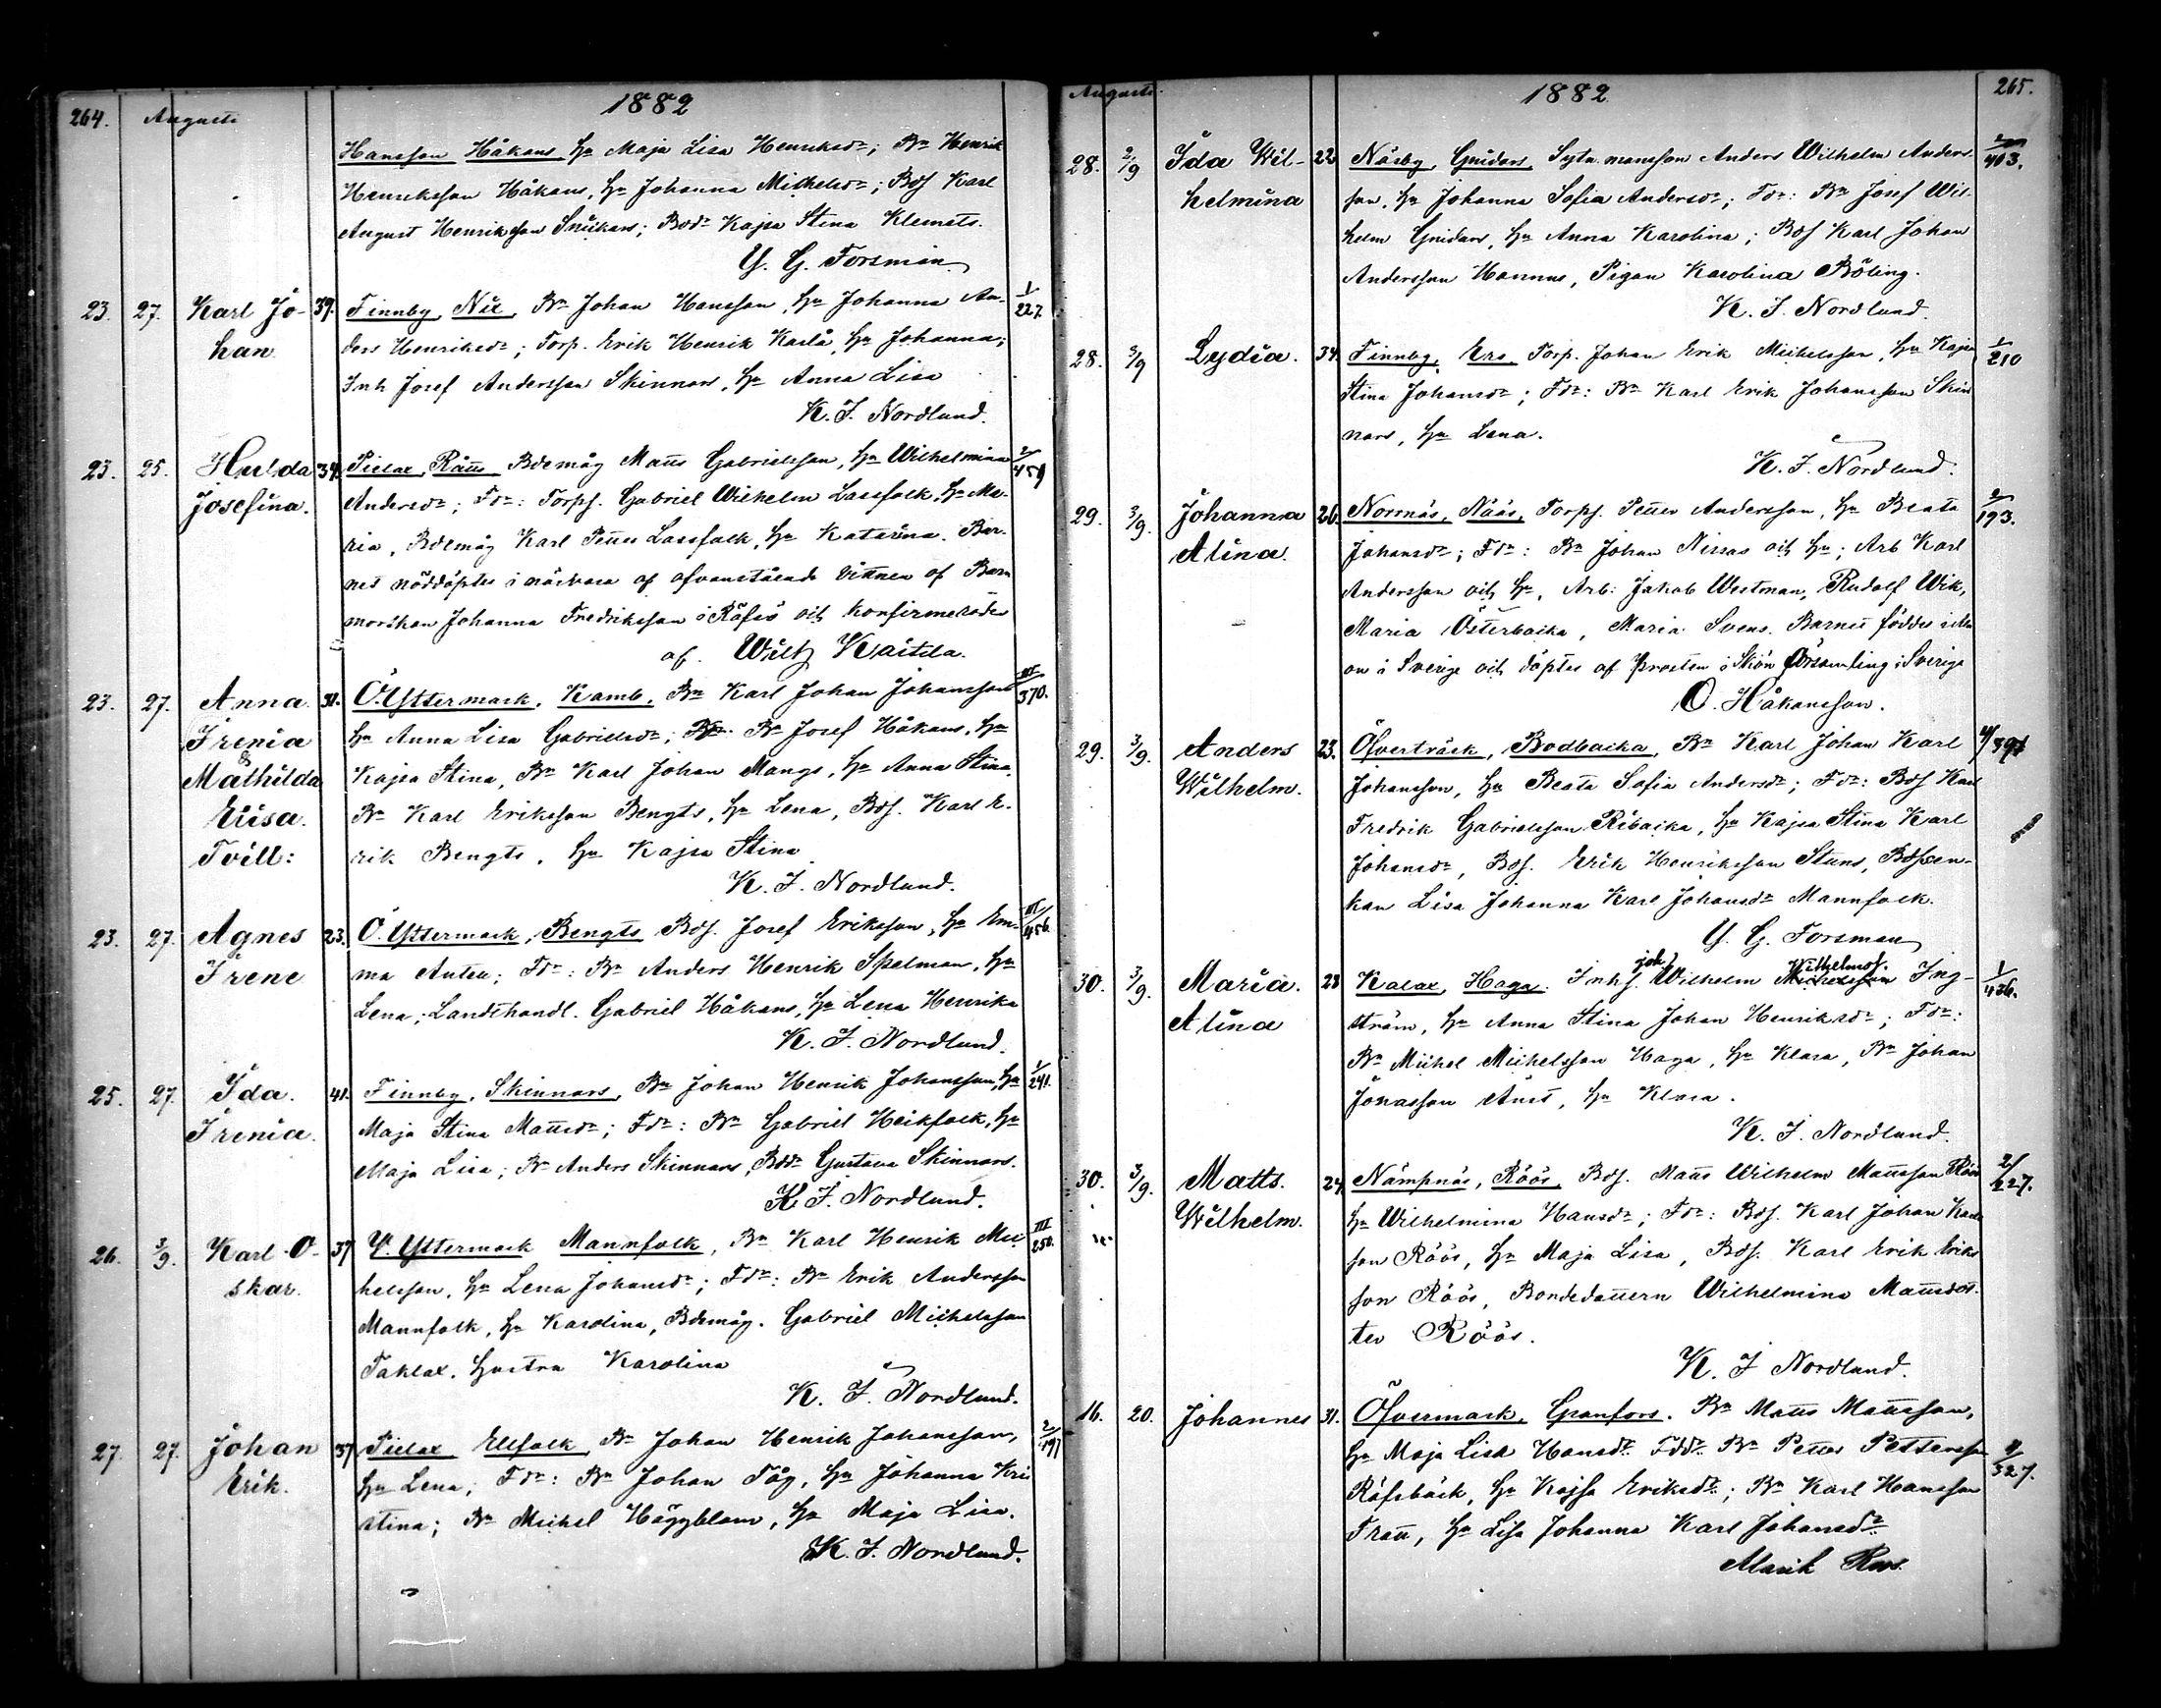 264. Augusti 1882
Hansson Håkans, Hu Maja Lisa Henriksdr; Bn Henrik
Henriksson Håkans, Hu Johanna Michelsdr; Bds Karl
August Henriksson Snickars; Bdr Kajsa Stina Klemets.
Y. G. Forsman
23. 27. Karl Jo- 39. Finnby, Nix, Bn Johan Hansson, Hu Johanna An- 1/227.
han ders Henriksdr; Torp. Erik Henrik Karlå, Hu Johanna;
Inh Josef Andersson Skinnars, Hu Anna Lisa
K. J. Nordlund.
23. 25. Hulda 34. Pielax, Rätts Bdemåg Matts Gabrielsson, Hu Wilhelmina 2/459
Josefina. Andersdr; Fdr: Torps. Gabriel Wilhelm Lassfolk, Hu Ma-
ria, Bdemåg Karl Petter Lassfolk, Hu Katarina. Bar-
net nöddöptes i närvaro af ofvanstående vittnen af Barn
morskan Johanna Fredriksson i Räfsö och konfirmerades
af. Wilh Kaitila.
23. 27. Anna 31. Ö. Yttermark, Kamb, Bn Karl Johan Johansson III/370.
Irenia Hu Anna Lisa Gabrielsdr; Bn Josef Håkans, Hu
& Mathilda Kajsa Stina, Bn Karl Johan Mangs, Hu Anna Stina,
Elisa. Bn Karl Eriksson Bengts, Hu Lena, Bds. Karl E-
Tvill: rik Bengts, Hu Kajsa Stina
K. J. Nordlund.
23. 27. Agnes 23. Ö. Yttermark, Bengts Bds. Josef Eriksson, Hu Em- III/456.
Irene ma Anten; Fdr: Bn Anders Henrik Spelman, Hu
Lena; Landthandl. Gabriel Håkans, Hu Lena Henrika
K. J. Nordlund.
25. 27. Ida 41. Finnby, Skinnars, Bn Johan Henrik Johansson, Hu 1/241.
Irenia. Maja Stina Mattsdr; Fdr: Bn Gabriel Heikfolk, Hu
Maja Lisa; Bn Anders Skinnars, Bdr Gustava Skinnars.
K. J. Nordlund.
26. 3/9. Karl O- 37 Y. Yttermark Mannfolk, Bn Karl Henrik Mic- III/250.
skar. helsson, Hu Lena Johansdr; Fdr: Bn Erik Andersson
Mannfolk, Hu Karolina, Bdemåg. Gabriel Michelsson
Taklax, Hustra Karolina
K. J. Nordlund.
27. 27. Johan 37 Pielax Ellfolk, Bn Johan Henrik Johansson, 2/197
Erik. Hu Lena; Fdr: Bn Johan Tåg, Hu Johanna Kri
stina; Bn Michel Häggblom, Hu Maja Lisa.
K. J. Nordlund.
Augusti. 1882 265.
28. 2/9 Ida Wil- 22 Näsby, Gnidars, Sytn.mansson Anders Wilhelm Anders- 2/403.
helmina son, Hu Johanna Sofia Andersdr; Fdr: Bn Josef Wil-
helm Gnidars, Hu Anna Karolina; Bds Karl Johan
Andersson Hannus, Pigan Karolina Böling.
K. J. Nordlund.
28. 3/9 Lydia. 34. Finnby, Ers, Torp. Johan Erik Michelsson, Hu Kajsa 1/210
Stina Johansdr; Fdr: Bn Karl Erik Johansson Skin
nars, Hu Lena.
K. J. Nordlund.
29. 3/9. Johanna 26. Norrnäs, Nääs, Torps. Petter Andersson, Hu Beata 2/193.
Alina. Johansdr; Fdr: Bn Johan Nissas och Hu; Arb Karl
Andersson och Hu, Arb: Jakob Westman, Rudolf Wik,
Maria Österbacka, Maria Svens. Barnet föddes i Alu
on i Sverige och döptes af prosten i Skön församling i Sverige
O. Håkansson.
29. 3/9. Anders 23. Öfverträsk, Bodbacka, Bn Karl Johan Karl 4/391
Wilhelm. Johansson, Hu Beata Sofia Andersdr; Fdr: Bds Karl
Fredrik Gabrielsson Ribacka, Hu Kajsa Stina Karl
Johansdr, Bds. Erik Henriksson Stuns, Bdspen-
kan Lisa Johanna Karl Johansdr Mannfolk.
Y. G. Forsman
30. 3/9. Maria. 28 Kalax, Haga. Inhs. Joh Wilhelm Michelsson Wilhelmss. Ing- 1/436.
Alina ström, Hu Anna Stina Johan Henriksdr; Fdr:
Bn Michel Michelsson Haga, Hu Klara, Bn Johan
Jonasson Aust, Hu Klara.
K. J. Nordlund.
30. 3/9. Matts. 24 Nämpnäs, Röös, Bds. Matts Wilhelm Mattsson Röös 2/227.
Wilhelm. Hu Wilhelmina Hansdr; Fdr: Bds. Karl Johan Karls
son Röös, Hu Maja Lisa, Bds. Karl Erik Eriks
son Röös, Bondedottern Wilhelmina Mattsdot-
ter Röös.
K. J Nordlund.
16. 20. Johannes 31. Öfvermark, Granfors. Bn Matts Mattsson,
Hu Maja Lisa Hansdr. Fddr. Bn Petter Pettersson 4/327.
Räfsbäck, Hu Kajsa Eriksdr; Bn Karl Hansson
Tratt, Hu Lisa Johanna Karl Johansdr